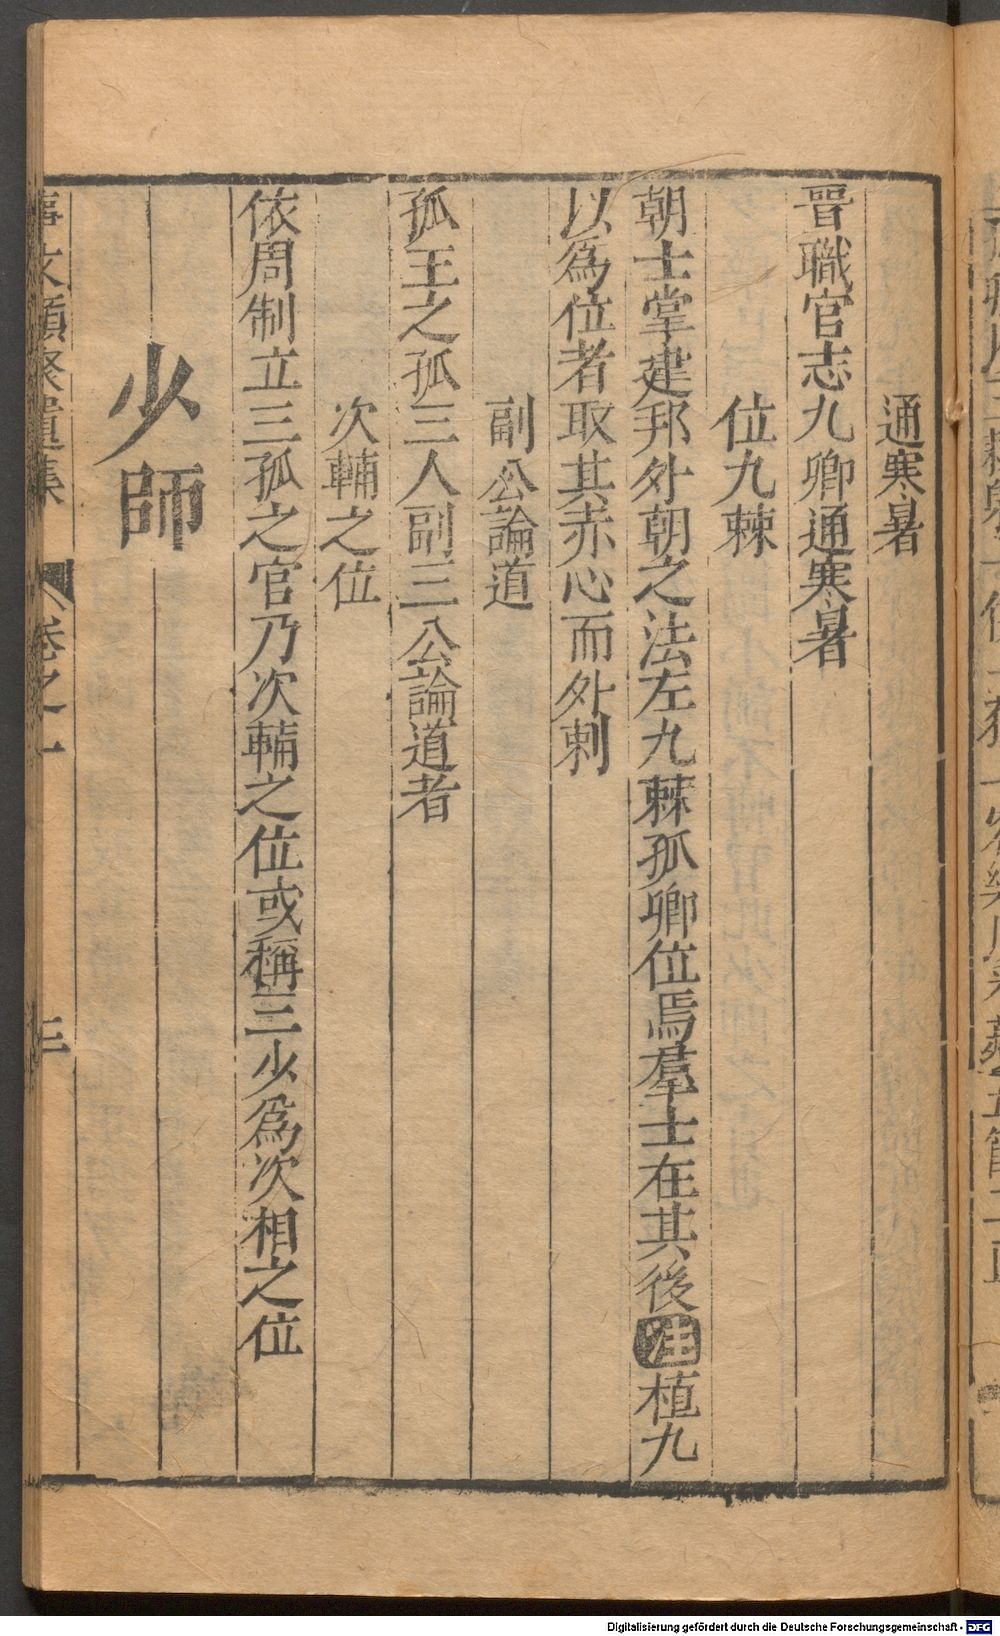 通寒暑
晉職官志九卿通寒暑
位九棘
朝士掌建邦外朝之法左九棘孤卿位焉羣士在其後注植九
以爲位者取其赤心而外刺
副公論道
孤王之孤三人副三公論道者
次輔之位
依周制立三孤之官乃次輔之位或稱三少爲次相之位
少師
事文類聚遺集 卷之一 三
Digitalisierung gefördert durch die Deutsche Forschungsgemeinschaft - DFG